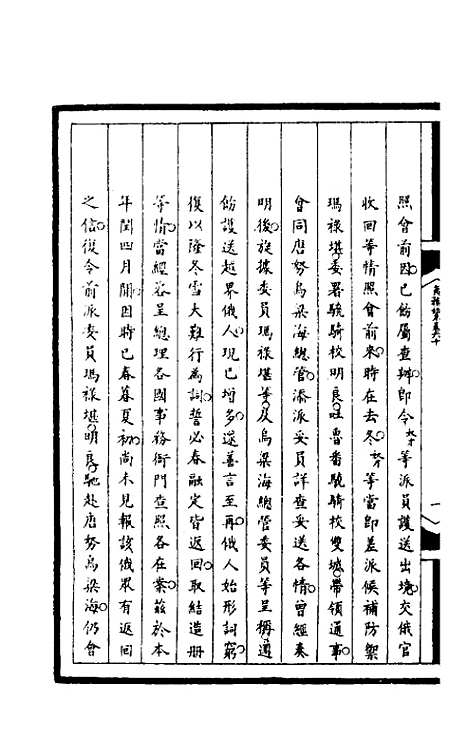 照會前因已飭屬查辦即令等派員護送出境交俄官
收回等情照會前來時在去冬等當即差派候補防禦
瑪祿堪委署驍騎校明良吐魯番驍騎校雙城帶領通事
會同唐努烏梁海總管添派妥員詳查妥送各情曾經奏
明後旋據委員瑪祿堪等及烏梁海總管委員等呈稱遵
飭護送越界俄人現已增多遂善言至再俄人始形詞窮
復以隆冬雪大難行為詞誓必春融定皆返回取結造册
等情當經咨呈總理各國事務衙門查照各在案茲於本
年閏四月開因時已春暮夏初尚未見報該俄眾有返回
之信復令前派委員瑪祿堪明良馳赴唐努烏梁海仍會